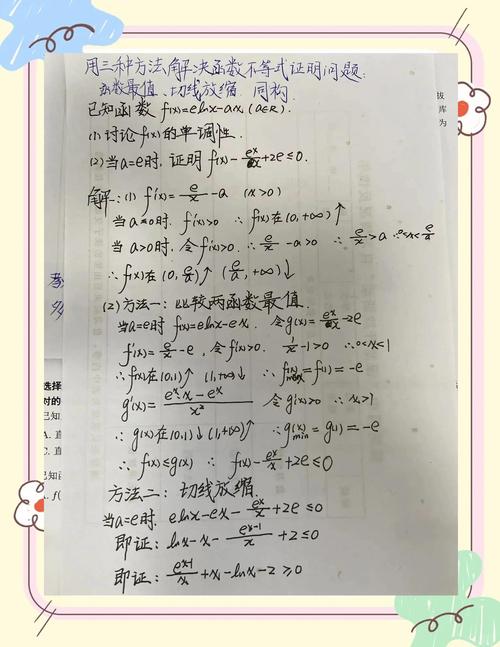 用三种方法解决函数不等式证明问题:
函数最值、切线放缩、同构.
已知函数 f(x)=elnx-ax, (a∈R).
(1) 讨论f(x)的单调性.
(2) 当a=e时, 证明 f(x)-e^x/x+2e≤0.
解: (1) f'(x)=e/x-a (x>0)
当a≤0时, f'(x)>0 ∴f(x)在(0,+∞)↑
当a>0时, 令f'(x)>0 ∴e/x-a>0 ∴e/x>a ∴0<x<e/a
∴f(x)在(0,e/a)↑ (e/a,+∞)↓
(2) 方法一: 比较两函数最值.
当a=e时 f(x)=elnx-ex, 令g(x)=e^x/x-2e
f'(x)=e/x-e, 令f'(x)>0, 1/x-1>0 ∴0<x<1
∴f(x)在(0,1)↑ (1,+∞)↓ ∴f(x)max=f(1)=-e
g'(x)=(e^x·x-e^x)/x² 令g'(x)>0 ∴x>1
∴g(x)在(0,1)↓(1,+∞)↑ ∴g(x)min=g(1)=-e
∴f(x)≤g(x) ∴f(x)-e^x/x+2e≤0
方法二: 切线放缩.
当a=e时, elnx-ex-e^x/x+2e≤0
即证: lnx-x-e^(x-1)/x+2≤0
即证: e^(x-1)/x+x-lnx-2≥0
选择
时的
已知
A. 直
C. 直
已知函
A. f(
库
为